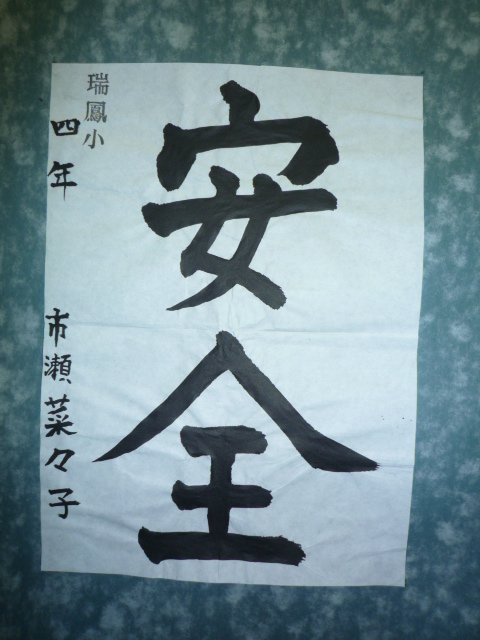 安全
瑞鳳小
四年 市瀬菜々子